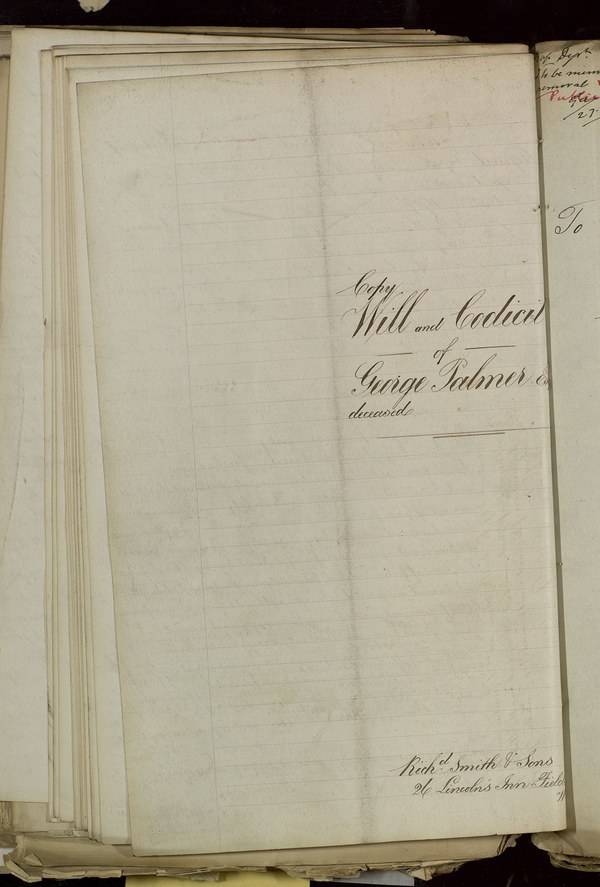 Copy
Will and Codicil
of
George Palmer
deceased
Richd. Smith & Sons
26 Lincoln's Inn Field
Dept.
to be
To